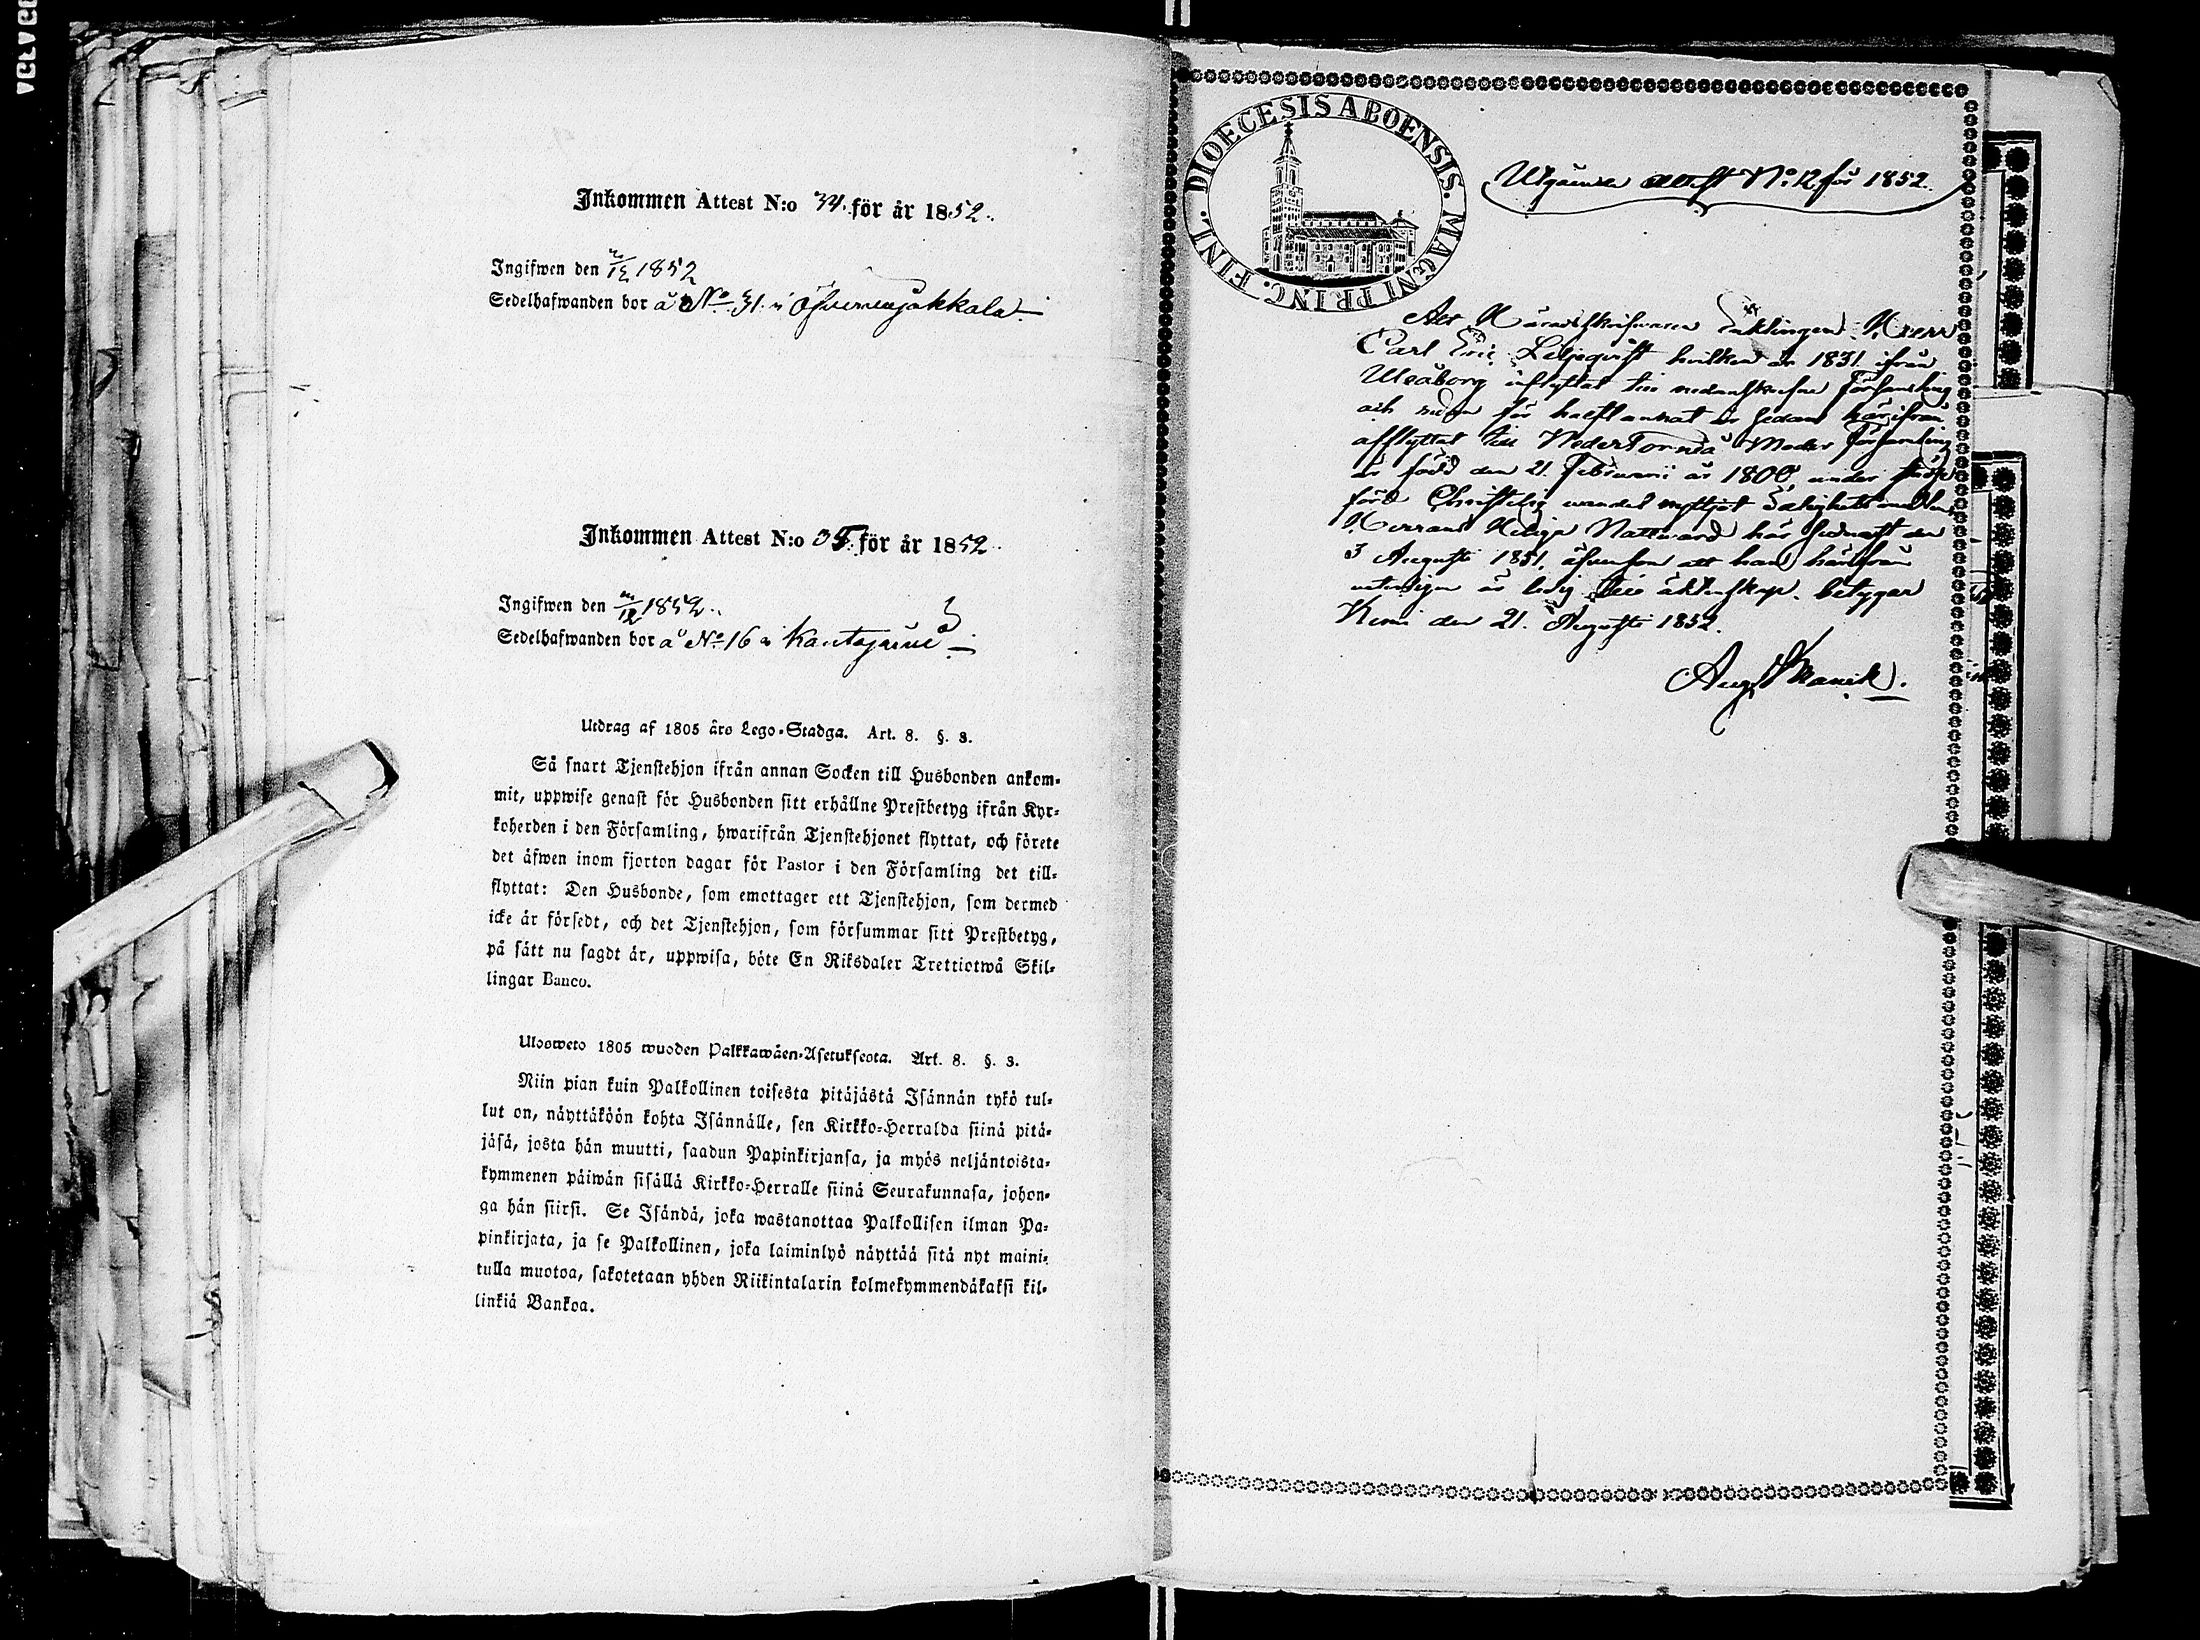 Inkommen Attest N:o 34. för år 1852.
Ingifwen den 1852
Sedelhafwanden bor å No 31 i
Inkommen Attest N:o 35 för år 1852.
Ingifwen den 1852.
Sedelhafwanden bor å No 16 i
Utdrag af 1805 års Lego-Stadga. Art. 8. §. 3.
Så snart Tjenstehjon ifrån annan Socken till Husbonden ankom-
mit, uppwise genast för Husbonden sitt erhållne Prestbetyg ifrån Kyr-
koherden i den Församling, hwarifrån Tjenstehjonet flyttat, och förete
det äfwen inom fjorton dagar för Pastor i den Församling det till-
flyttat: Den Husbonde, som emottager ett Tjenstehjon, som dermed
icke är försedt, och det Tjenstehjon, som försummar sitt Prestbetyg,
på sätt nu sagdt är, uppwisa, böte En Riksdaler Trettiotwå Skil-
lingar Banco.
Ulosweto 1805 wuoden Palkkawäen-Asetuksesta. Art. 8. §. 3.
Niin pian kuin Palkollinen toisesta pitäjästä Isännän tykö tul-
lut on, näyttäköön kohta Isännälle, sen Kirkko-Herralda siinä pitä-
jäsä, josta hän muutti, saadun Papinkirjansa, ja myös neljäntoista-
kymmenen päiwän sisällä Kirkko-Herralle siinä Seurakunnasa, johon-
ga hän siirsi. Se Isändä, joka wastanottaa Palkollisen ilman Pa-
pinkirjata, ja se Palkollinen, joka laiminlyö näyttää sitä nyt maini-
tulla muotoa, sakotetaan yhden Riikintalarin kolmekymmendäkaksi kil-
linkiä Bankoa.
DIOECESIS ABOENSIS. MAGNI PRINC. FINL.
Utgående attest No 12 för 1852.
Att Häradsskrifwaren Herr
Carl Eric Liljeqvist hvilken år 1831 ifrån
Uleåborg inflyttat till nedanskrefne Församling
och redan för halftannat år sedan härifrån
afflyttat till NederTorneå Moder församling
är född den 21. Februarii år 1800, under
förd Christelig wandel nyttjat Salighetsmedlen,
Herrans Heliga Nattward här sednast den
3 Augusti 1851, äfwensom att han härifrån
weterligen är ledig till äktenskap, betygar
Kemi den 21. Augusti 1852.
Aug.